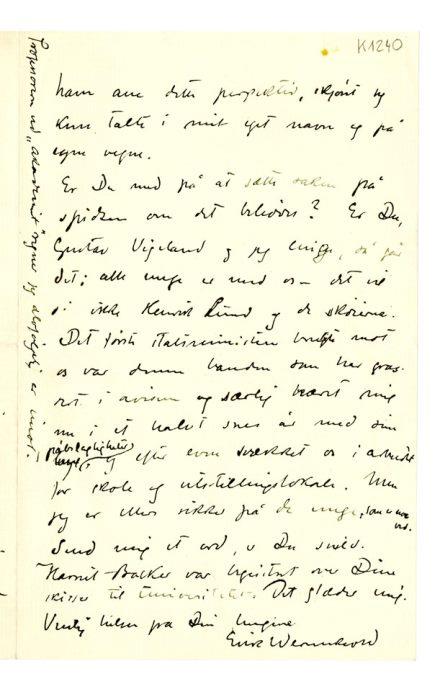 K1240
ham ane dette perspektiv, skjønt jeg
kun talte i mit eget navn og på
egne vegne.
Er Du med på at sætte saken på
spidsen om det behøves? Er Du,
Gustav Vigeland og jeg enige, så går
det; alle unge er med os – det vil
si ikke Henrik Lund og de skøierne.
Det første statsministeren brugte mot
os var denne banden som har gras-
sert i avisen og særlig beæret mig
nu i et halvt snes år med sin
påtrængelighet
efter evne svækket os i arbeidet
for skole og utstillingslokale. Men
jeg er ellers sikker på de unge, som er noe
ved.
Send mig et ord, er Du snild.
Harriet Backer var begeistret over Dine
skisser til Universitetet. Det glæder mig.
Venlig hilsen fra Din hengivne
Erik Werenskiold
Professoren ved "akademiet" regner jeg absolut er imot.